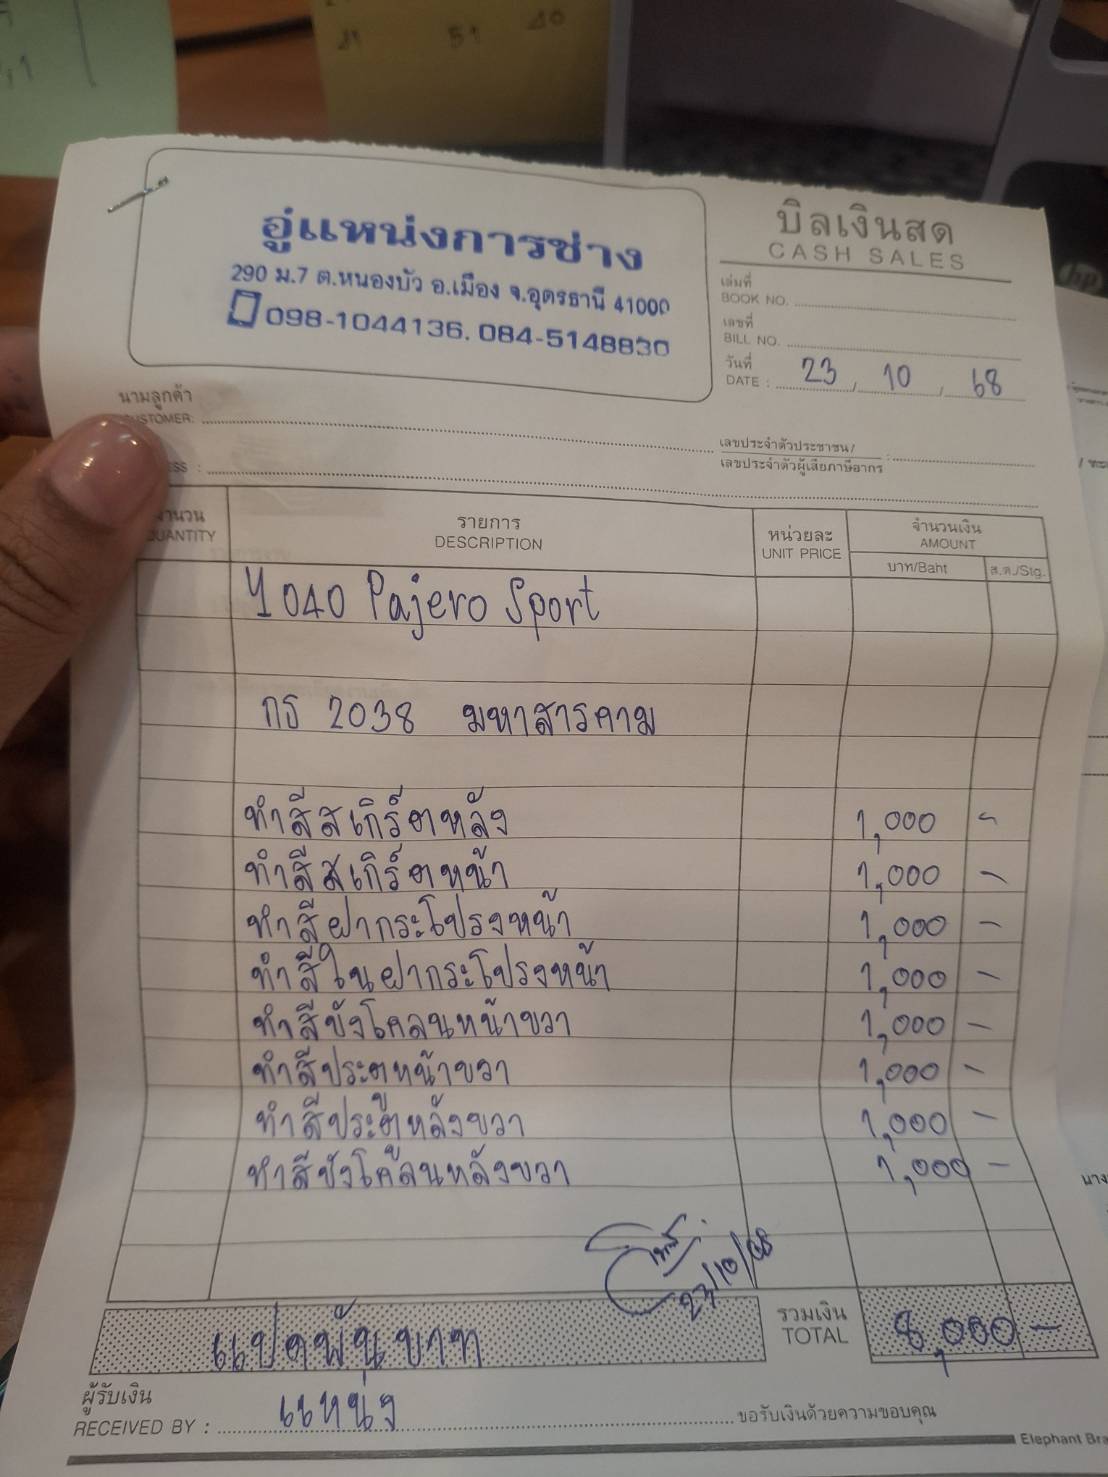 21 51 20
อู่แหน่งการช่าง
290 ม.7 ต.หนองบัว อ.เมือง จ.อุดรธานี 41000
098-1044136, 084-5148830
บิลเงินสด
CASH SALES
เล่มที่
BOOK NO.
เลขที่
BILL NO.
วันที่
DATE : 23 / 10 / 68
นามลูกค้า
CUSTOMER:
เลขประจำตัวประชาชน/
เลขประจำตัวผู้เสียภาษีอากร :
จำนวน QUANTITY รายการ DESCRIPTION หน่วยละ UNIT PRICE จำนวนเงิน AMOUNT
บาท/Baht ส.ต./Stg.
1040 Pajero Sport
กธ 2038 มหาสารคาม
ทำสีสเกิร์ตหลัง 1,000 -
ทำสีสเกิร์ตหน้า 1,000 -
ทำสีฝากระโปรงหน้า 1,000 -
ทำสีในฝากระโปรงหน้า 1,000 -
ทำสีบังโคลนหน้าขวา 1,000 -
ทำสีประตูหน้าขวา 1,000 -
ทำสีประตูหลังขวา 1,000 -
ทำสีบังโคลนหลังขวา 1,000 -
23/10/68
แปดพันบาท รวมเงิน TOTAL 8,000 -
ผู้รับเงิน
RECEIVED BY : แหน่ง ขอรับเงินด้วยความขอบคุณ
Elephant Bra